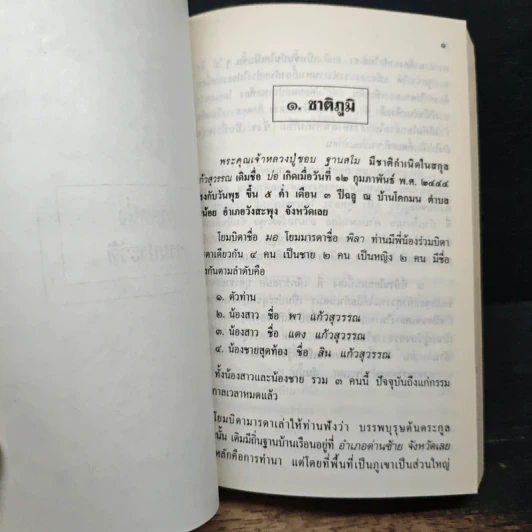 ๑
๑. ชาติภูมิ
พระคุณเจ้าหลวงปู่ชอบ ฐานสโม มีชาติกำเนิดในสกุล
แก้วสุวรรณ เดิมชื่อ บ่อ เกิดเมื่อวันที่ ๑๒ กุมภาพันธ์ พ.ศ. ๒๔๔๔
ตรงกับวันพุธ ขึ้น ๕ ค่ำ เดือน ๓ ปีฉลู ณ บ้านโคกมน ตำบล
น้อย อำเภอวังสะพุง จังหวัดเลย
โยมบิดาชื่อ มอ โยมมารดาชื่อ พิลา ท่านมีพี่น้องร่วมบิดา
มารดาเดียวกัน ๔ คน เป็นชาย ๒ คน เป็นหญิง ๒ คน มีชื่อ
เรียงกันตามลำดับคือ
๑. ตัวท่าน
๒. น้องสาว ชื่อ พา แก้วสุวรรณ
๓. น้องสาว ชื่อ แดง แก้วสุวรรณ
๔. น้องชายสุดท้อง ชื่อ สิน แก้วสุวรรณ
ทั้งน้องสาวและน้องชาย รวม ๓ คนนี้ ปัจจุบันถึงแก่กรรม
กาลเวลาหมดแล้ว
โยมบิดามารดาเล่าให้ท่านฟังว่า บรรพบุรุษต้นตระกูล
นั้น เดิมมีถิ่นฐานบ้านเรือนอยู่ที่ อำเภอด่านซ้าย จังหวัดเลย
หลักคือการทำนา แต่โดยที่พื้นที่เป็นภูเขาเป็นส่วนใหญ่